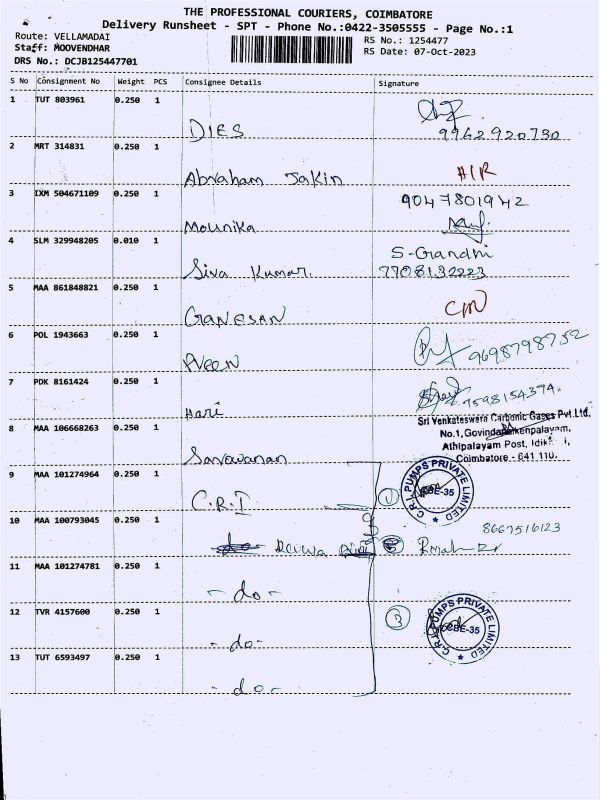 THE PROFESSIONAL COURIERS, COIMBATORE
Delivery Runsheet - SPT - Phone No.:0422-3505555 - Page No.:1
Route: VELLAMADAI
RS No.: 1254477
Staff: MOOVENDHAR
RS Date: 07-Oct-2023
DRS No.: DCJB125447701
S No Consignment No Weight PCS Consignee Details Signature
1 TUT 803961 0.250 1
DIES 9942920730
2 MRT 314831 0.250 1
Abraham Jakin AIR
3 IXM 504671109 0.250 1 9047801942
Mounika
4 SLM 329948205 0.010 1 S-Gandhi
Siva Kumar. 7708132223
5 MAA 861848821 0.250 1
GANESAN CM
6 POL 1943663 0.250 1
9698798752
7 PDK 8161424 0.250 1
9598154374.
Hari
8 MAA 106668263 0.250 1
Sri Venkateswara Carbonic Gases Pvt.Ltd.
No.1, kenpalayam,
Athipalayam Post,
Saravanan Coimbatore - 641 110.
9 MAA 101274964 0.250 1
C.R.I
C.R.I. PUMPS PRIVATE LIMITED
CBE-35
10 MAA 100793045 0.250 1
8667516123
11 MAA 101274781 0.250 1
- do -
12 TVR 4157600 0.250 1
3
C.R.I. PUMPS PRIVATE LIMITED
CBE-35
- do -
13 TUT 6593497 0.250 1
- do -